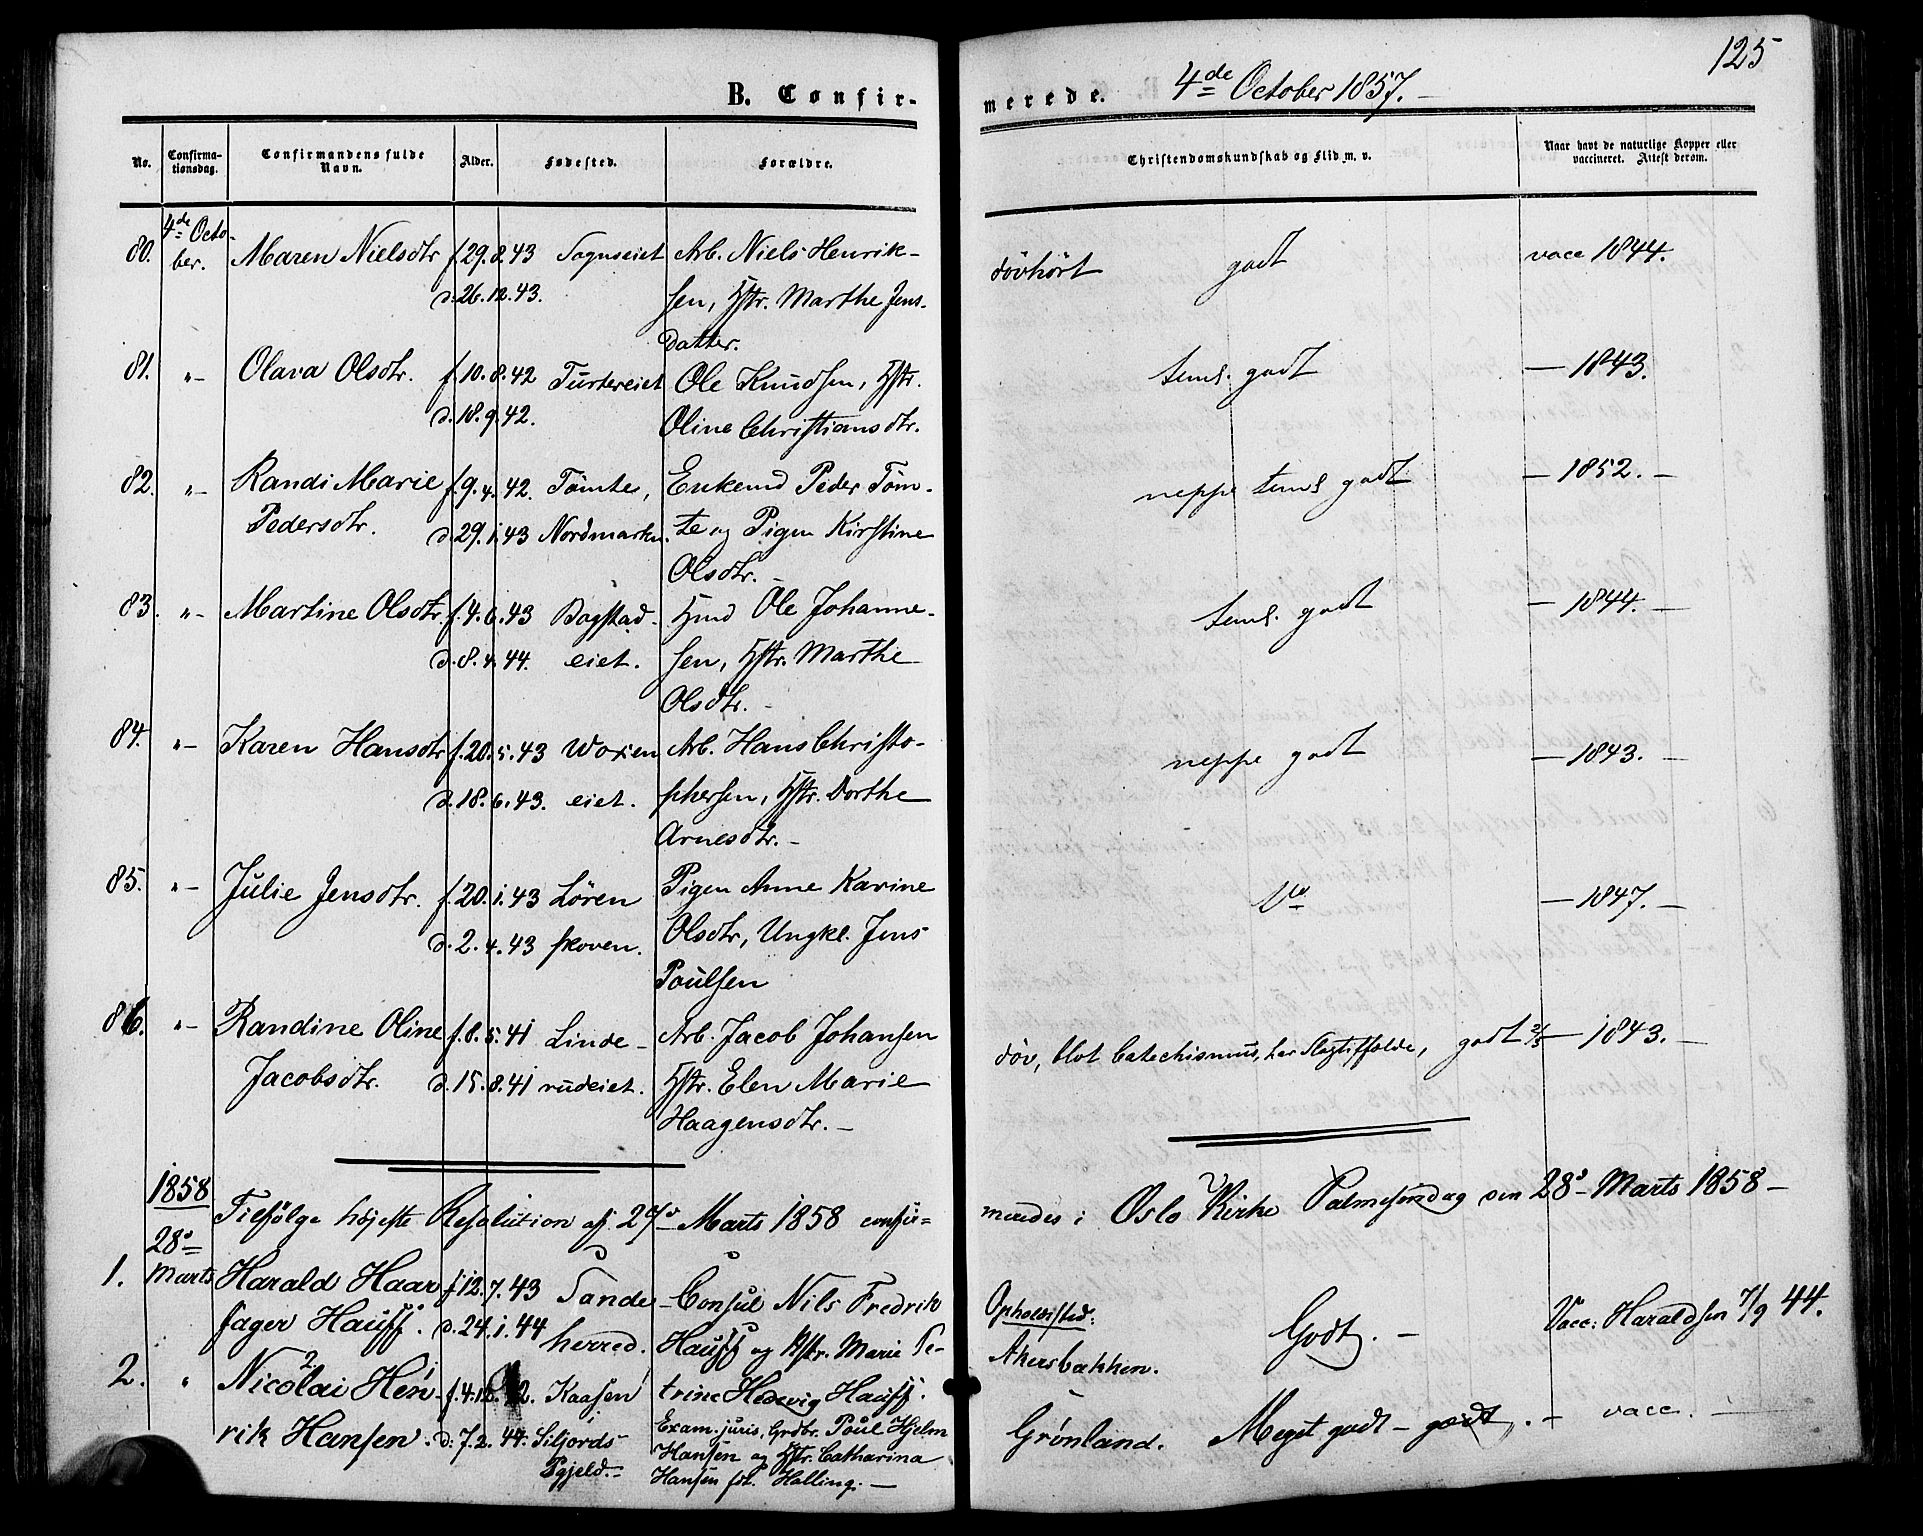 125
B. Confir-
merede. 4de October 1857.
No. Confirma-tionsdag. Confirmandens fulde Navn. Alder. Fødested. Forældre. Christendomskundskab og Flid m. v. Naar havt de naturlige Kopper eller vaccineret. Attest derom.
4de Octo-
80. ber. Maren Nielsdtr f. 29.8.43 Sognseiet Arb. Niels Henrik- døvhørt godt vacc 1844.
d. 26.12.43. sen, Hstr. Marthe Jens-
datter.
81. "- Olava Olsdtr. f. 10.8.42 Turtereiet Ole Knudsen, Hstr. teml. godt — 1843.
d. 18.9.42. Oline Christiansdtr.
82. "- Randi Marie f. 9.4.42. Tømte, Enkemd Peder Tøm- neppe teml godt — 1852. —
Pedersdtr. d. 29.1.43 Nordmarken. te og Pigen Kirstine
Olsdtr. —
83. "- Martine Olsdtr. f. 4.6.43 Bogstad- Hmd Ole Johanne- teml. godt — 1844. —
d. 8.4.44. eiet. sen, Hstr. Marthe
Olsdtr. —
84. "- Karen Hansdtr f. 20.5.43 Woxen Arb. Hans Christo- neppe godt — 1843. —
d. 18.6.43. eiet. phersen, Hstr. Dorthe
Arnesdtr. —
85. "- Julie Jensdtr. f. 20.1.43 Løren Pigen Anne Karine — 1847. —
d. 2.4.43 skoven. Olsdtr, Ungkl. Jens
Poulsen
86. "- Randine Oline f. 8.5.41 Linde- Arb. Jacob Johansen døv, blot Catechismus, har Slagtilfælde, godt 2/3 — 1843. —
Jacobsdtr. d. 15.8.41 rudeiet. Hstr. Elen Marie
Haagensdtr. —
1858 Tilfølge højeste Resolution af 27de Marts 1858 confir= meredes i Oslo Kirke Palmesøndag den 28de Marts 1858 —
28de
1. Marts Harald Haar f. 12.7.43 Sande- Consul Nils Fredrik Opholdssted: Godt. — Vacc: Haraldsen 7/9 44.
fager Hauff. d. 24.1.44 herred. Hauff og Hstr. Marie Pe- Akersbakken.
2. " Nicolai Hen- f. 4.12.42. Kaasen trine Hedevig Hauff.
rik Hansen. d. 7.2.44. Siljords Exam. juris, Grdbr. Poul Hjelm Grønland. Meget godt — godt. — vacc. —
Pgjeld. — Hansen og Hstr. Catharina
Hansen fdt. Halling. —